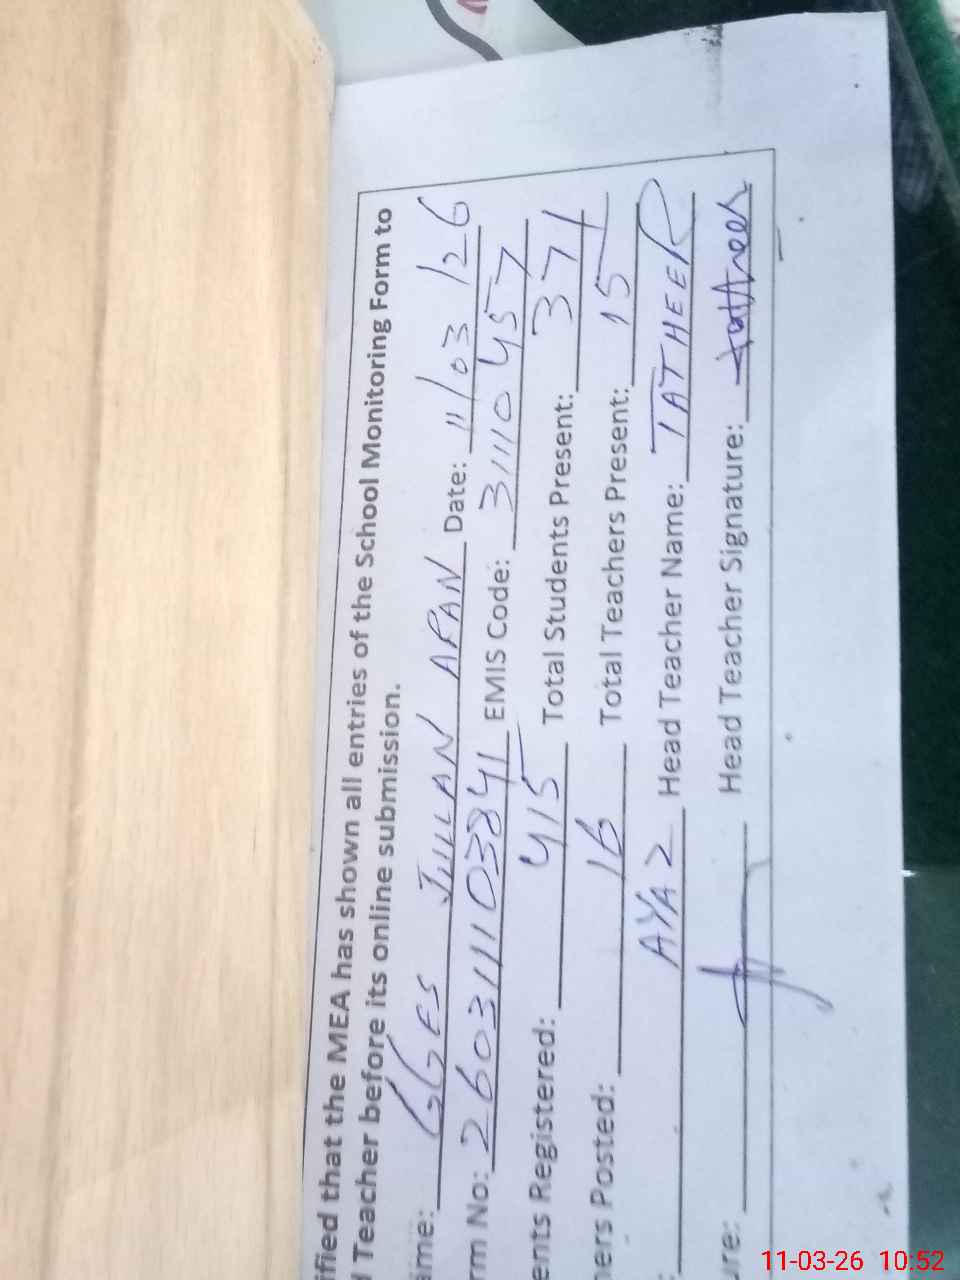 ified that the MEA has shown all entries of the School Monitoring Form to
Teacher before its online submission.
ame: GGES JILLAN ARAN Date: 11/03/26
rm No: 260311103841 EMIS Code: 31110457
ents Registered: 415 Total Students Present: 371
hers Posted: 16 Total Teachers Present: 15
: AYAZ Head Teacher Name: TATHEER
ure: Head Teacher Signature: tatheer
11-03-26 10:52